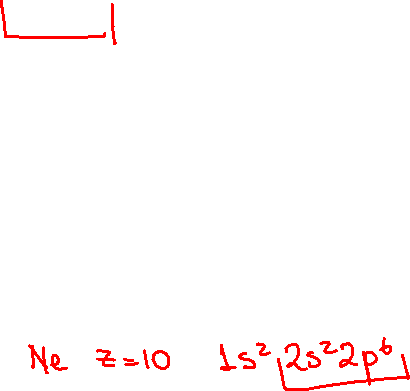 Ne Z=10 1s² 2s²2p⁶